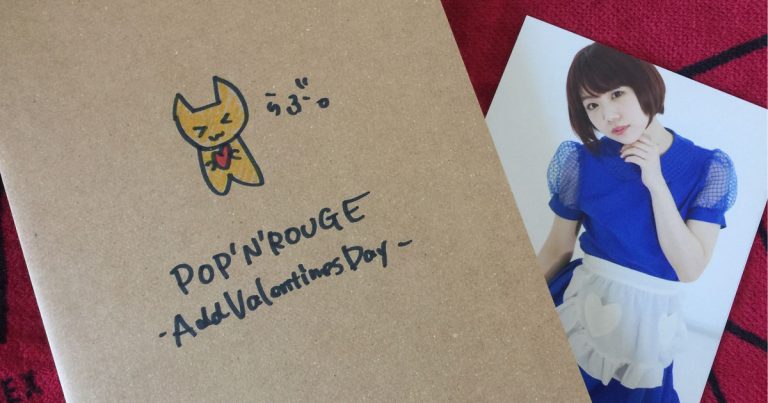 らぶ。
POP'N'ROUGE
-AddValentinesDay-
EX